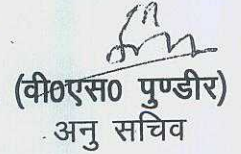 (वी0एस0 पुण्डीर)
अनु सचिव